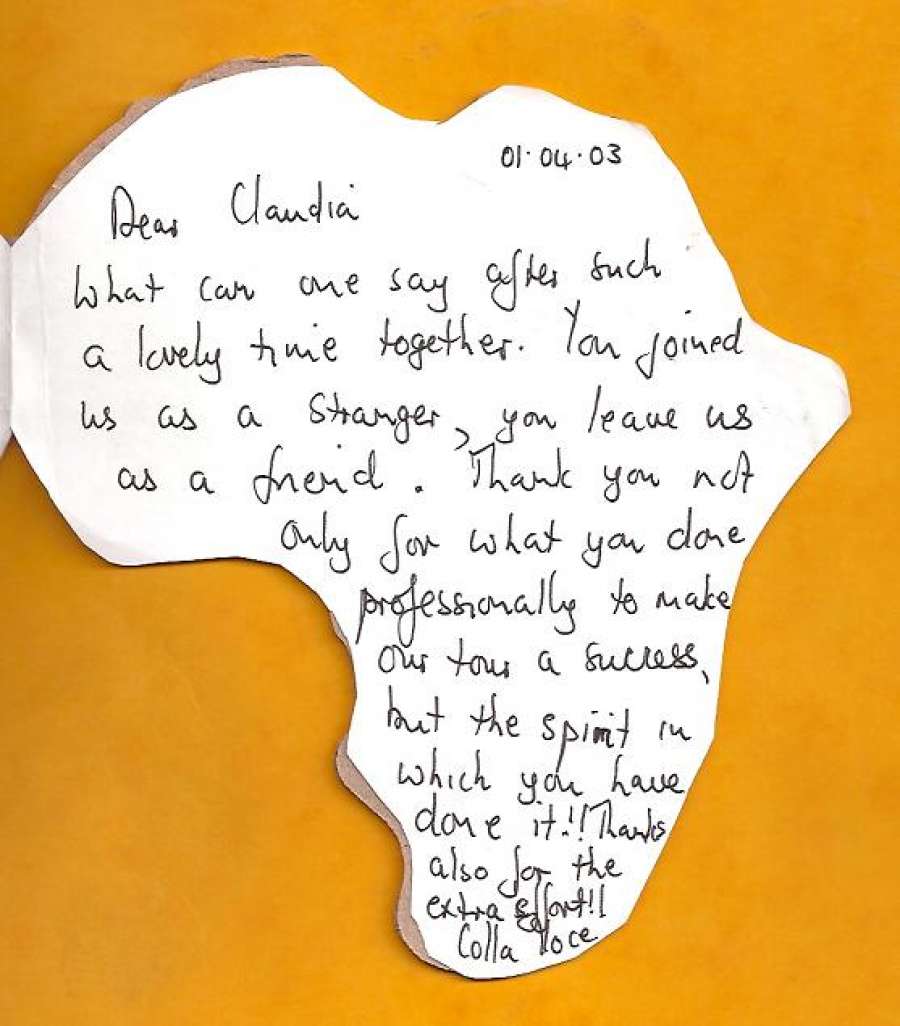 01.04.03
Dear Claudia
What can one say after such
a lovely time together. You joined
us as a stranger, you leave us
as a friend. Thank you not
only for what you done
professionally to make
our tour a success,
but the spirit in
which you have
done it!! Thanks
also for the
extra effort!!
Colla Voce